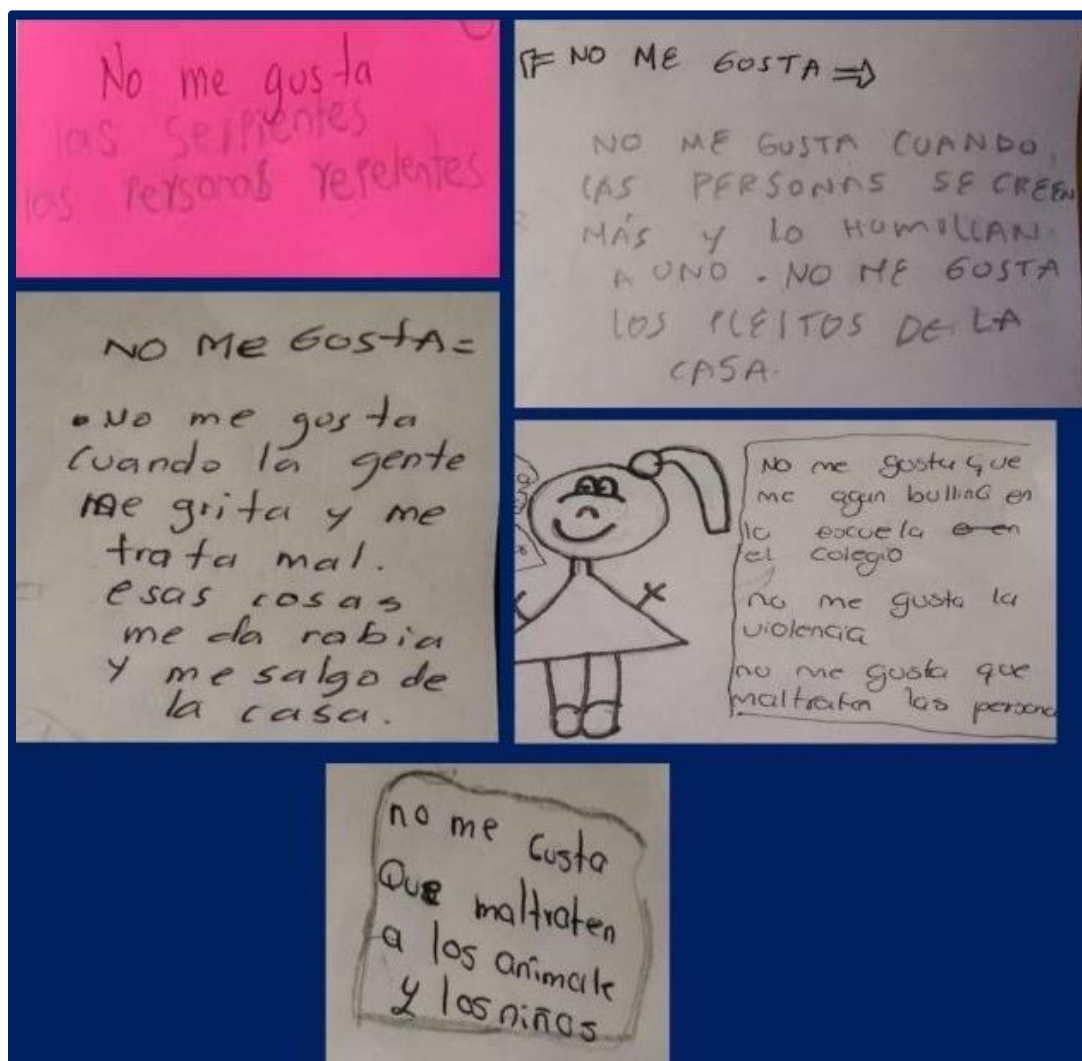 No me gusta
las serpientes
las personas repelentes
NO ME GOSTA
NO ME GUSTA CUANDO
LAS PERSONAS SE CREEN
MÁS Y LO HUMILLAN
A UNO. NO ME GOSTA
LOS PLEITOS DE LA
CASA.
NO ME GOSTA=
• No me gusta
cuando la gente
me grita y me
trata mal.
esas cosas
me da rabia
y me salgo de
la casa.
No me gusta que
me agan bulling en
la escuela e en
el colegio
no me gusta la
violencia
no me gusta que
maltraten las persona
no me Gusta
Que maltraten
a los animale
y los niños